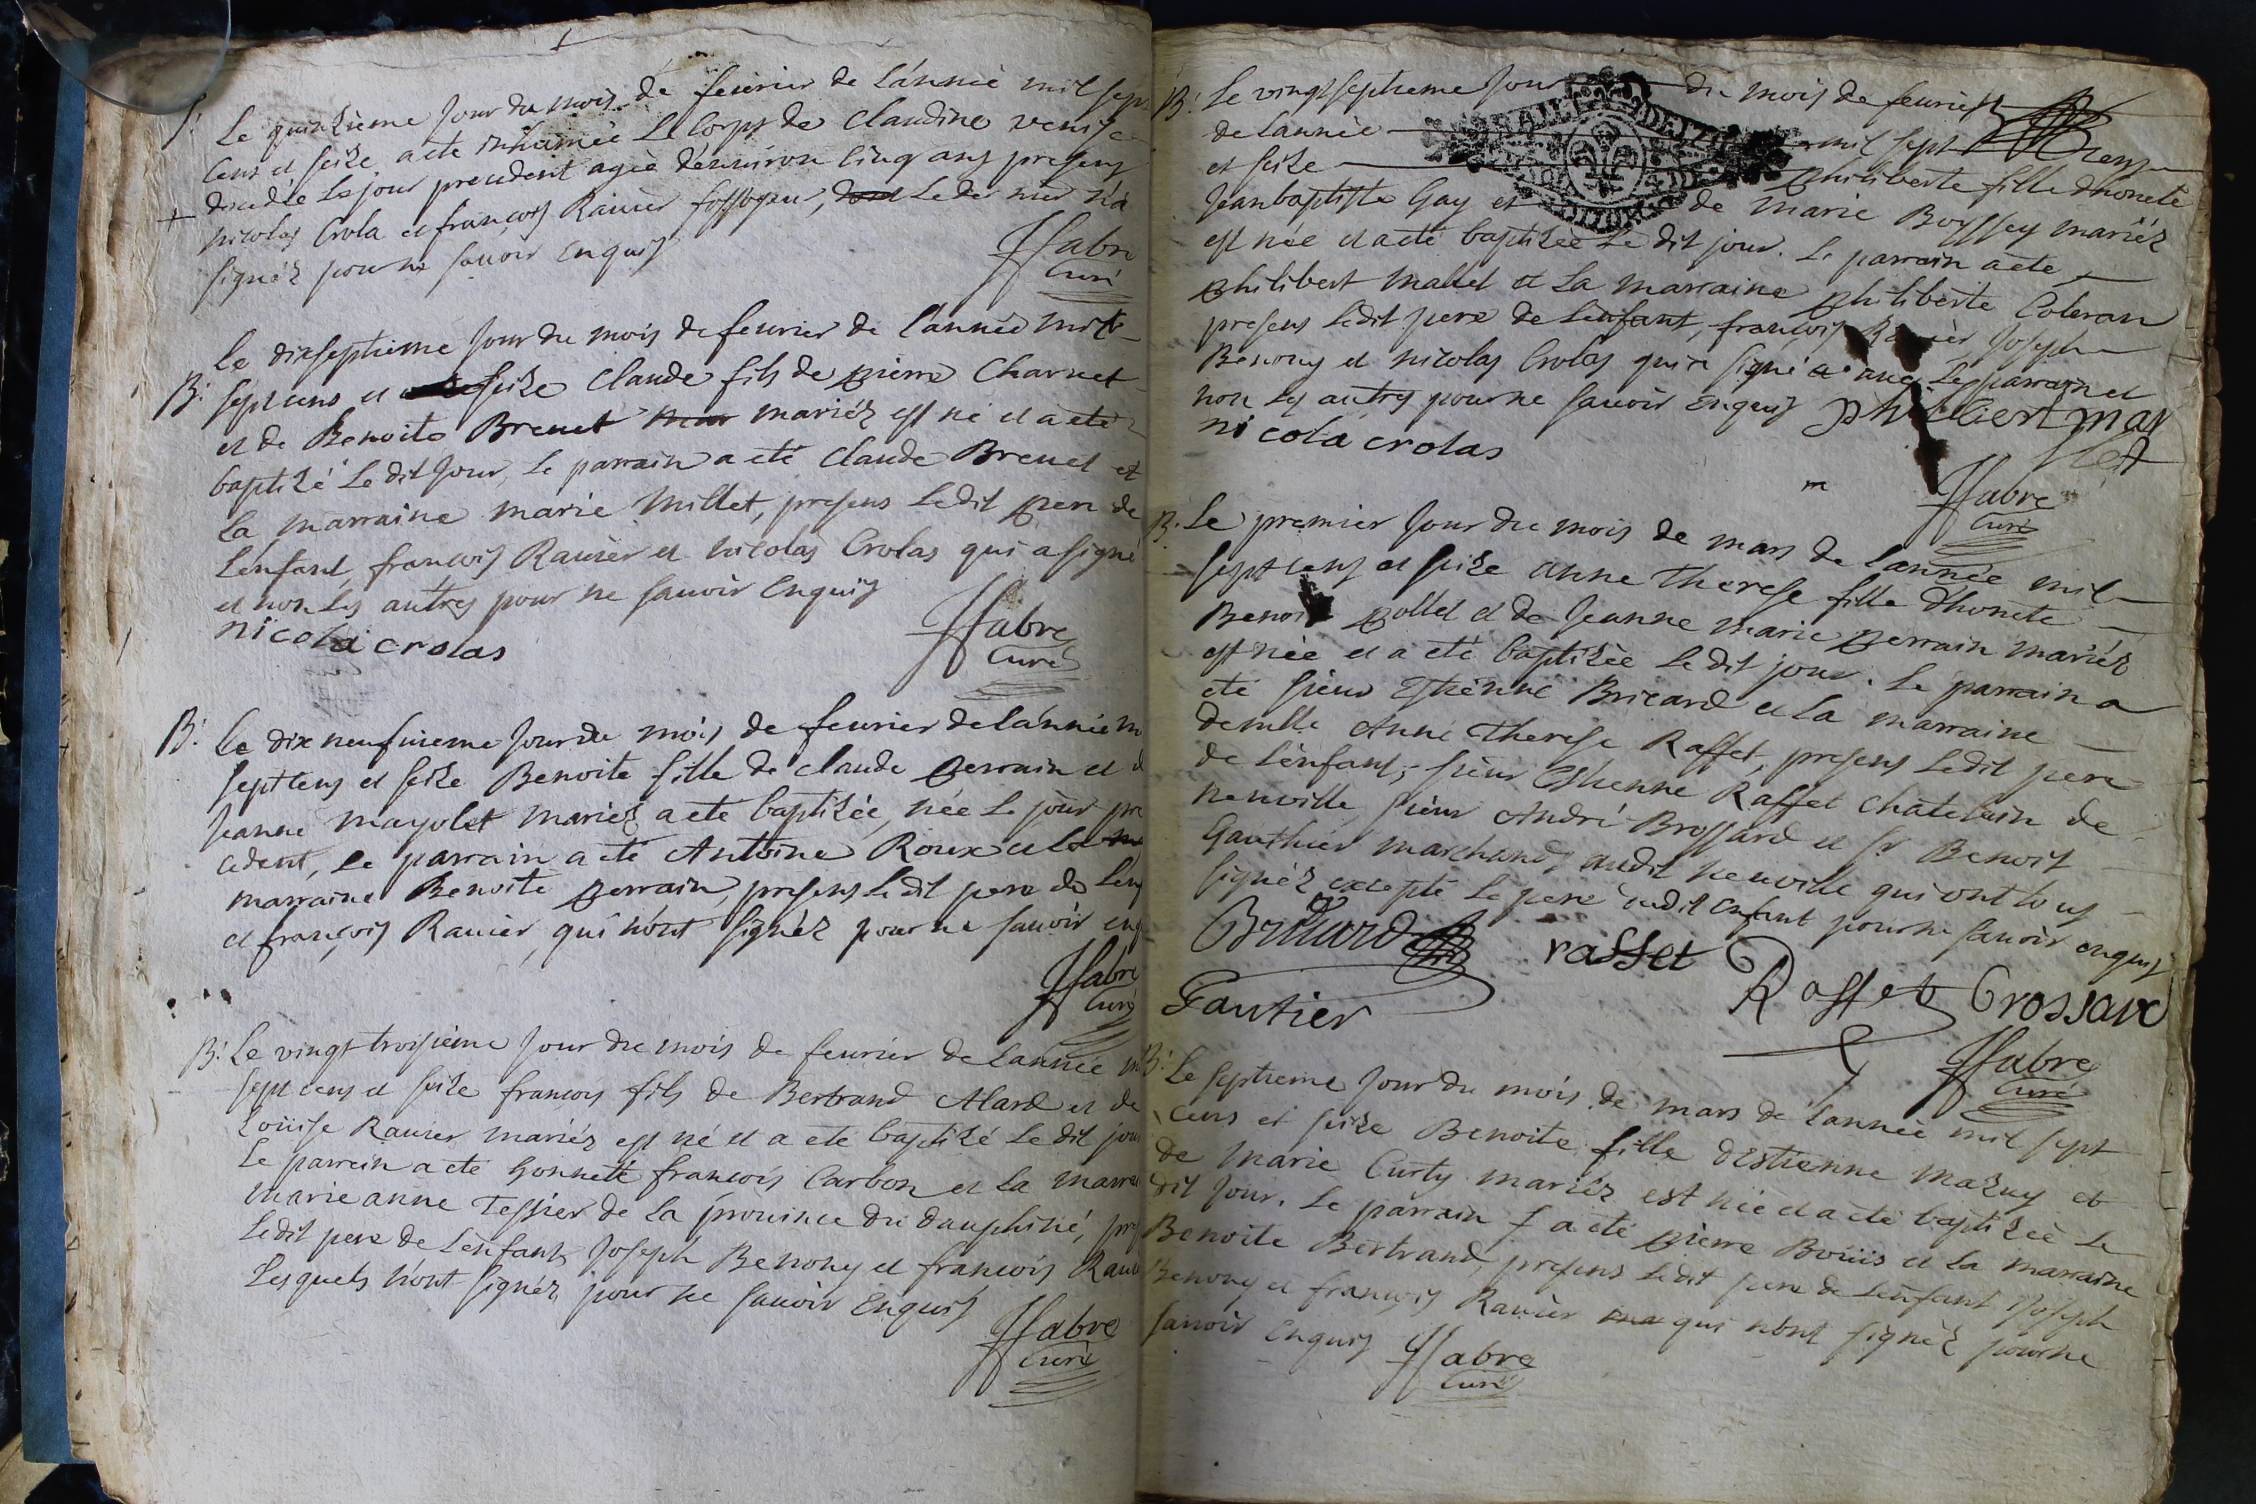 S.
Le quinzieme jour du mois de feurier de l'année mil sept
cens et seize a eté inhumée Le Corps de Claudine
decedée Le jour precedent agée d'enuiron Cinq ans presens
nicolas Crola et françois Rauier fossoyeur, Le dernier n'a
signéz pour ne sauoir Enquis
JFabre
Curé
Le dixseptieme jour du mois de feurier de l'année mil
B. sept cens et seize Claude fils de pierre Charuet
et de Benoite Breuet mariéz est né et a eté
baptizé Le dit Jour, Le parrain a eté Claude Breuet et
La marraine marie Millet, presens Ledit pere de
L'enfant, françois Rauier et nicolas Crolas qui a signé
et non Les autres pour ne sauoir Enquis
nicola crolas
JFabre
Curé
B. Le dix neufuieme Jour du mois de feurier de l'année m
sept cens et seize Benoite fille de Claude perrain et d
Jeanne mayolet mariéz a eté baptizée, née Le jour pre
cedent, Le parrain a eté Antoine Roux et La
marraine Benoite perrain, presens Ledit pere de Len
et françois Rauier, qui n'ont signéz pour ne sauoir enq
JFabre
Curé
B. Le vingt troisieme Jour du mois de feurier de L'année m
sept cens et seize françois fils de Bertrand Alard et de
Loüise Rauier mariéz est né et a eté baptizé Le dit jour
Le parrain a eté honneté françois Carbon et La marra
marie anne Tessier de La prouince du dauphiné, pre
Ledit pere de L'enfant, Joseph Benony et françois Raui
Lesquels n'ont signéz pour ne sauoir Enquis
JFabre
Curé
B. Le vingtseptieme jour du mois de feurier
de Lannée mil sept cens
et seize philiberte fille d'honeté
Jean baptiste Gay et de marie Boyssey mariéz
est née et a eté baptizée Le dit jour. Le parrain a eté
philibert mallet et La marraine philiberte Coleran
presens Ledit pere de L'enfant, françois Rauier Joseph
Benony et nicolas Crolas qui a signé auec Le parrain et
non Les autres pour ne sauoir Enquis philibert mal
nicola crolas let
JFabre
Curé
B. Le premier Jour du mois de mars de L'année mil
sept cens et seize Anne Therese fille d'honete
Benoit pollet et de Jeanne marie perrain mariéz
est née et a eté baptizée Le dit jour. Le parrain a
eté sieur Estienne Bricard et La marraine
demlle Anne Therese Raffet, presens Ledit pere
de L'enfant, sieur Estienne Raffet chatelain de
neuville, sieur André Brossard et Sr Benoit
Gauthier marchands audit neuville qui ont tous
signéz excepté Le pere dudit enfant pour ne sauoir enquis
raffet
Gautier Raffet brossard
JFabre
Curé
B. Le septieme Jour du mois de mars de L'année mil sept
cens et seize Benoite fille d'Estienne Mazuy et
de marie Curty mariéz est née et a eté baptizée Le
dit jour. Le parrain a eté pierre Boüis et La marraine
Benoite Bertrand, presens Ledit pere de L'enfant Joseph
Benony et françois Rauier qui n'ont signéz pour ne
sauoir Enquis
JFabre
Curé